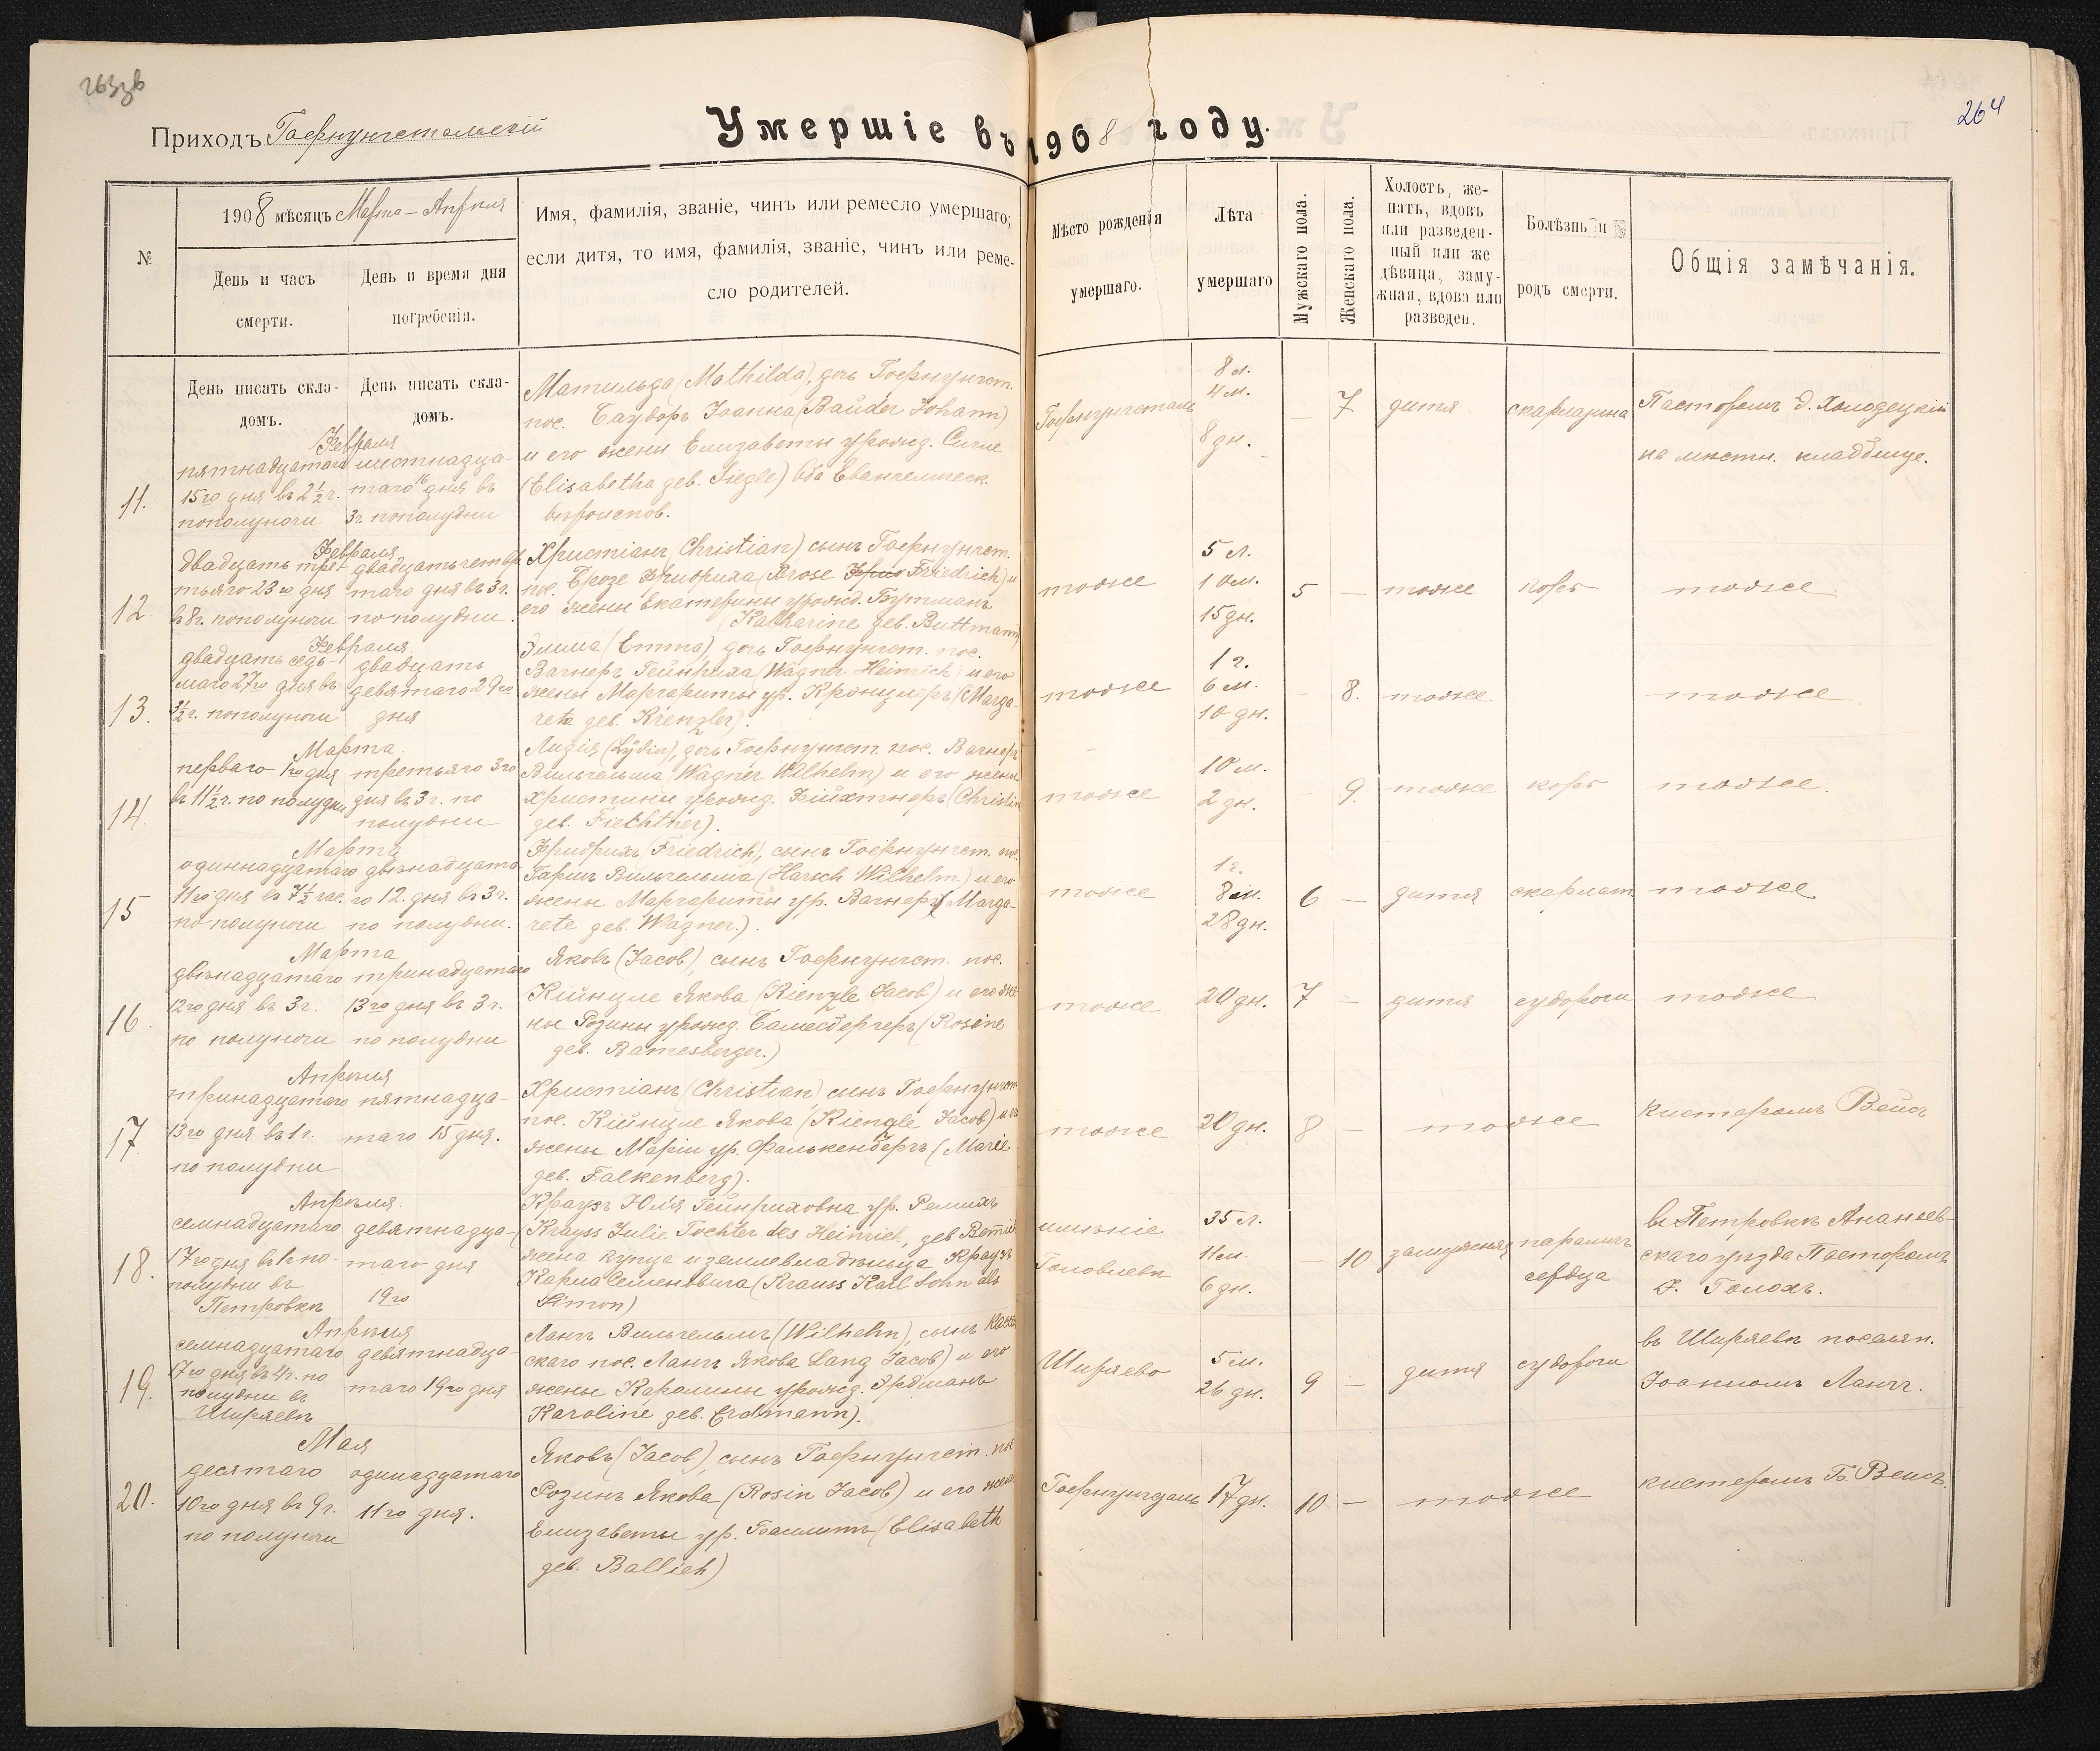 263зв
264
Приходъ Гофнунгстальскій
Умершіе въ 1908 году.
№
1908 мѣсяцъ Марта - Апрѣля
День и часъ
смерти.
День и время дня
погребенія.
Имя, фамилія, званіе, чинъ или ремесло умершаго;
если дитя, то имя, фамилія, званіе, чинъ или реме-
сло родителей.
Мѣсто рожденія
умершаго.
Лѣта
умершаго
Мужскаго пола.
Женскаго пола.
Холостъ, же-
натъ, вдовъ
или разведен-
ный или же
дѣвица, заму-
жная, вдова или
разведен.
Болѣзнь и
родъ смерти.
Общія замѣчанія.
День писать скла-
домъ.
День писать скла-
домъ.
11.
Февраля
пятнадцатаго
15го дня въ 2½ г.
пополуночи
шестнадца-
таго 16 дня въ
3 г. пополудни
Матильда (Mathilda), дочь Гофнунгст.
пос. Баудеръ Іоанна (Bauder Johann)
и его жены Елизаветы урожд. Сигле
(Elisabetha geb. Siegle) Оба Евангелическ.
вѣроиспов.
Гофнунгсталь
8 л.
4 м.
8 дн.
—
7
дитя
скарлатина
Пасторомъ Д. Холодецкій
на мѣстн. кладбище.
12.
Февраля
двадцать тре-
тьяго 23го дня
въ 8 г. пополуночи
двадцать четвер
таго дня въ 3 г.
по полудни.
Христіанъ (Christian) сынъ Гофнунгст.
пос. Брозе Фридриха (Brose Friedrich) и
его жены Екатерины урожд. Бутманъ
(Katharine geb. Buttmann)
тоже
5 л.
10 м.
15 дн.
5
—
тоже
корь
тоже.
13.
Февраля
двадцать седь-
маго 27го дня въ
пополуночи
двадцать
девятаго 29го
дня
Эмма (Emma), дочь Гофнунгст. пос.
Вагнеръ Гейнриха (Wagner Heinrich) и его
жены Маргариты ур. Кренцлеръ (Marga-
rete geb. Krenzler).
тоже
1 г.
6 м.
10 дн.
—
8.
тоже
тоже.
14.
Марта.
перваго 1го дня
въ 11½ г. по полудни
третьяго 3го
дня въ 3 г. по
полудни
Лидія (Lydia), дочь Гофнунгст. пос. Вагнеръ
Вильгельма (Wagner Wilhelm) и его жены
Христины урожд. Фійхтнеръ (Christin
geb. Fiechtner).
тоже
10 м.
2 дн.
—
9.
тоже
корь
тоже.
15
Марта
одиннадцатаго
11го дня въ 7½ час.
по полуночи
двѣнадцата
го 12. дня въ 3 г.
по полудни.
Фридрихъ (Friedrich), сынъ Гофнунгст. пос.
Гаршъ Вильгельма (Harsch Wilhelm) и его
жены Маргариты ур. Вагнеръ (Marga-
rete geb. Wagner.).
тоже
1 г.
8 м.
28 дн.
6
—
дитя
скарлат.
тоже
16
Марта
двѣнадцатаго
12го дня въ 3 г.
по полуночи
тринадцатаго
13го дня въ 3 г.
по полудни
Яковъ (Jacob), сынъ Гофнунгст. пос.
Кійнцле Якова (Kienzle Jacob) и его же-
ны Розины урожд. Бамесбергеръ (Rosine
geb. Bamesberger.)
тоже
20 дн.
7
—
дитя
судороги
тоже
17
Апрѣля
тринадцатаго
13го дня въ 1 г.
по полудни
пятнадца-
таго 15 дня.
Христіанъ (Christian) сынъ Гофнунгст
пос. Кійнцле Якова (Kienzle Jacob) и его
жены Маріи ур. Фалькенбергъ (Marie
geb. Falkenberg).
тоже
20 дн.
8
—
тоже
Кистеромъ Вейсъ
18.
Апрѣля.
семнадцатаго
17го дня въ 1 г. по-
полудни въ
Петровкѣ
девятнадца-
таго дня
19го
Краузъ Юлія Гейнриховна ур.
(Krauss Julie Tochter des Heinrich, geb
жена купца и землевладѣльца Краузъ
Карла Семеновича (Krauss Karl Sohn des
Simon)
имѣніе
Головлевк
35 л.
11 м.
6 дн.
—
10
замужняя
параличъ
сердца
въ Петровкѣ Ананьев-
скаго уѣзда Пасторомъ
19.
Апрѣля
семнадцатаго
17го дня въ 4 г. по
полудни въ
Ширяевѣ
девятнадца-
таго 19го дня
Лангъ Вильгельмъ (Wilhelm), сынъ
скаго пос. Лангъ Якова (Lang Jacob) и его
жены Каролины урожд. Эрдманъ
Karoline geb. Erdmann).
Ширяево
5 м.
26 дн.
9
—
дитя
судороги
въ Ширяевѣ поселян.
Іоанномъ Лангъ.
20.
Мая
десятаго
10го дня въ 9 г.
по полуночи
одинадцатаго
11го дня.
Яковъ (Jacob), сынъ Гофнунгст. пос
Розинъ Якова (Rosin Jacob) и его жены
Елизаветы ур. (Elisabeth
geb. Ballich)
Гофнунгсталь
17 дн.
10
—
тоже
кистеромъ Г. Вейсъ.